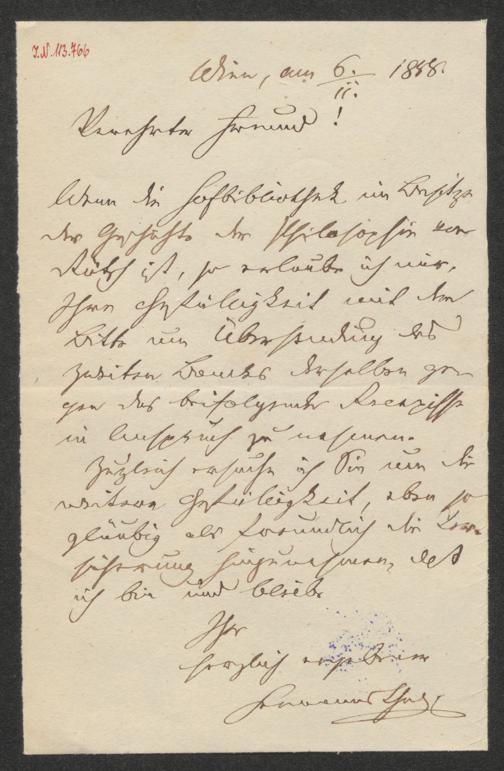 I.N. 113.766
Wien, am 6./II. 1888.
Verehrter Freund!
Wenn die Hofbibliothek im Besitze
der Geschichte der Philosophie von
ist, so erlaube ich mir,
Ihre Gefälligkeit mit der
Bitte um Übersendung des
zweiten Bandes derselben ge-
gen das beifolgende Recepisse
in Anspruch zu nehmen.
Zugleich ersuche ich Sie um die
weitere Gefälligkeit, eben so
gläubig als freundlich die Ver-
sicherung hinzunehmen, daß
ich bin und bleibe
Ihr
herzlich ergebener